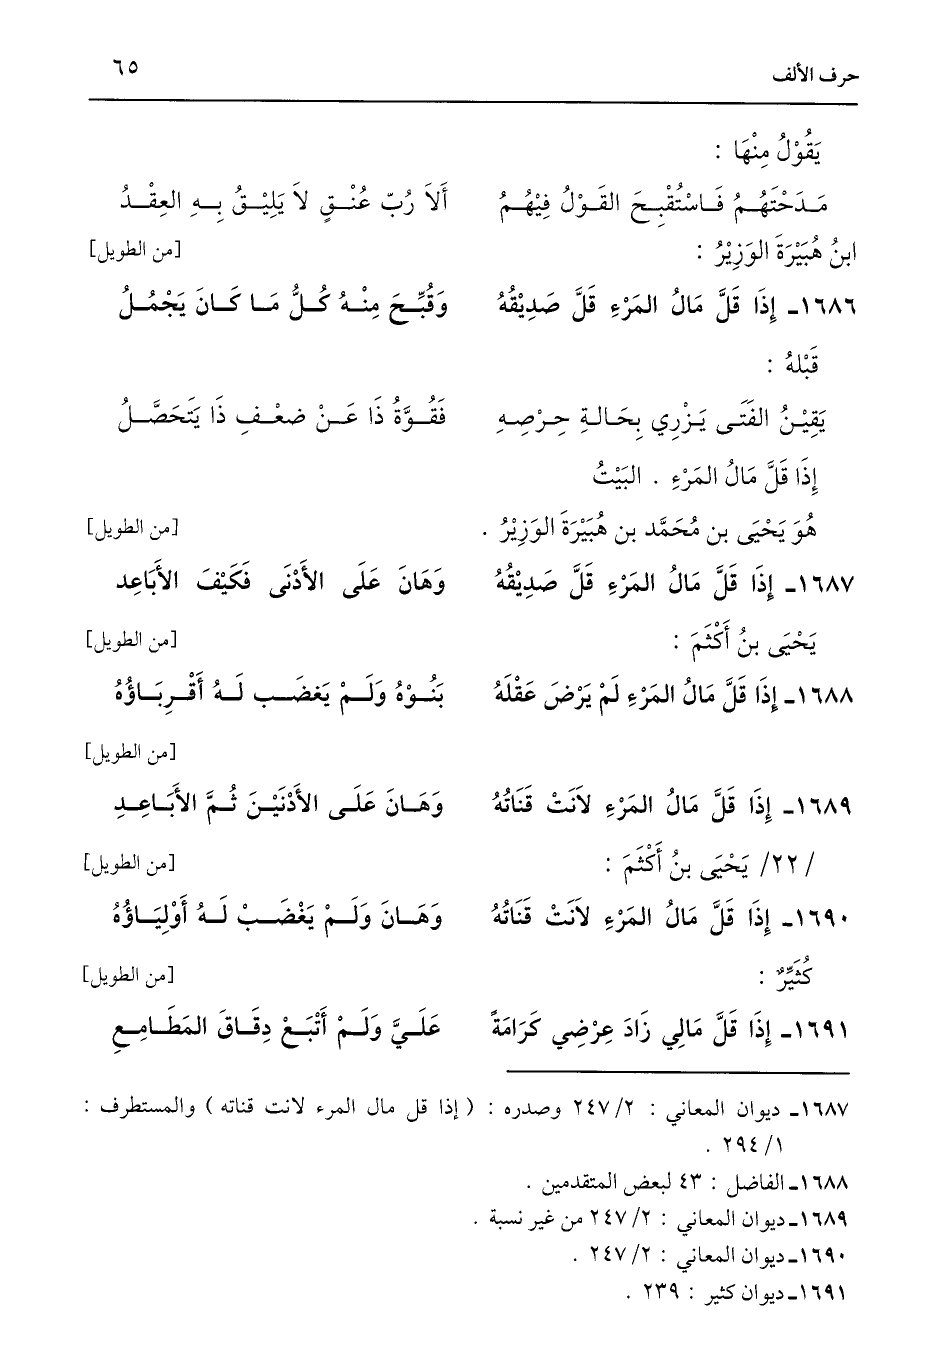 حرف الألف ٦٥
يَقُوْلُ مِنْهَا :
مَـدَحْتَهُـمُ فَـاسْتُقْبِـحَ القَـوْلُ فِيْهُـمُ أَلاَ رُبّ عُنْـقٍ لاَ يَلِيْـقُ بِـهِ العِقْـدُ
ابنُ هُبَيْرَةَ الوَزِيْرُ : [من الطويل]
١٦٨٦ـ إِذَا قَلَّ مَالُ المَرْءِ قَلَّ صَدِيْقُهُ وَقُبِّـحَ مِنْـهُ كُـلُّ مَـا كَـانَ يَجْمُـلُ
قَبْلهُ :
يَقِيْـنُ الفَتَـى يَـزْرِي بِحَالـةِ حِـرْصِـهِ فَقُـوَّةُ ذَا عَـنْ ضـعْـفِ ذَا يَتَحَصَّـلُ
إِذَا قَلَّ مَالُ المَرْءِ . البَيْتُ
هُوَ يَحْيَى بن مُحَمَّد بن هُبَيْرَةَ الوَزِيْرُ . [من الطويل]
١٦٨٧ـ إِذَا قَلَّ مَالُ المَرْءِ قَلَّ صَدِيْقُهُ وَهَانَ عَلَى الأَدْنَى فَكَيْفَ الأَبَاعِد
يَحْيَى بنُ أَكْثَمَ : [من الطويل]
١٦٨٨ـ إِذَا قَلَّ مَالُ المَرْءِ لَمْ يَرْضَ عَقْلَهُ بَنُـوْهُ وَلَـمْ يَغضَـب لَـهُ أَقْـرِبَـاؤُهُ
[من الطويل]
١٦٨٩ـ إِذَا قَلَّ مَالُ المَرْءِ لاَنَتْ قَنَاتُهُ وَهَـانَ عَلَـى الأَدْنَيْـنَ ثُـمَّ الأَبَـاعِـدِ
/ ٢٢/ يَحْيَى بنُ أَكْثَمَ : [من الطويل]
١٦٩٠ـ إِذَا قَلَّ مَالُ المَرْءِ لاَنَتْ قَنَاتُهُ وَهَـانَ وَلَـمْ يَغْضَـبْ لَـهُ أَوْلِيَـاؤُهُ
كُثَيِّرٌ : [من الطويل]
١٦٩١ـ إِذَا قَلَّ مَالِي زَادَ عِرْضِي كَرَامَةً عَلَـيَّ وَلَـمْ أَتْبَـعْ دِقَـاقَ المَطَـامِـعِ
١٦٨٧ـ ديوان المعاني : ٢/ ٢٤٧ وصدره : ( إذا قل مال المرء لانت قناته ) والمستطرف :
١/ ٢٩٤ .
١٦٨٨ـ الفاضل : ٤٣ لبعض المتقدمين .
١٦٨٩ـ ديوان المعاني : ٢/ ٢٤٧ من غير نسبة .
١٦٩٠ـ ديوان المعاني : ٢/ ٢٤٧ .
١٦٩١ـ ديوان كثير : ٢٣٩ .